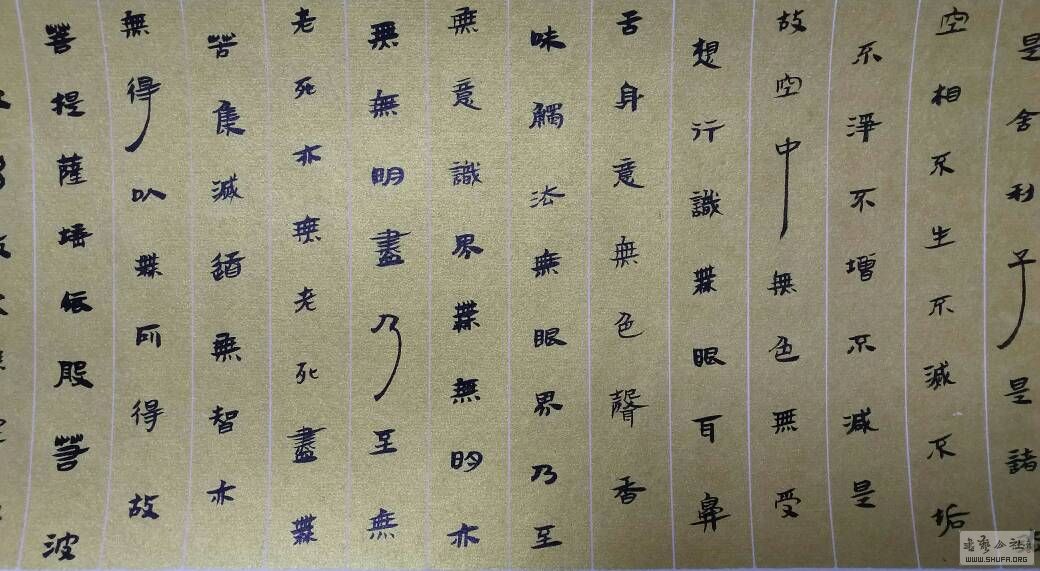 是舍利子是諸
空相不生不滅不垢
不淨不增不減是
故空中無色無受
想行識無眼耳鼻
舌身意無色聲香
味觸法無眼界乃至
無意識界無無明亦
無無明盡乃至無
老死亦無老死盡無
苦集滅道無智亦
無得以無所得故
菩提薩埵依般若波
书艺公社
WWW.SHUFA.ORG